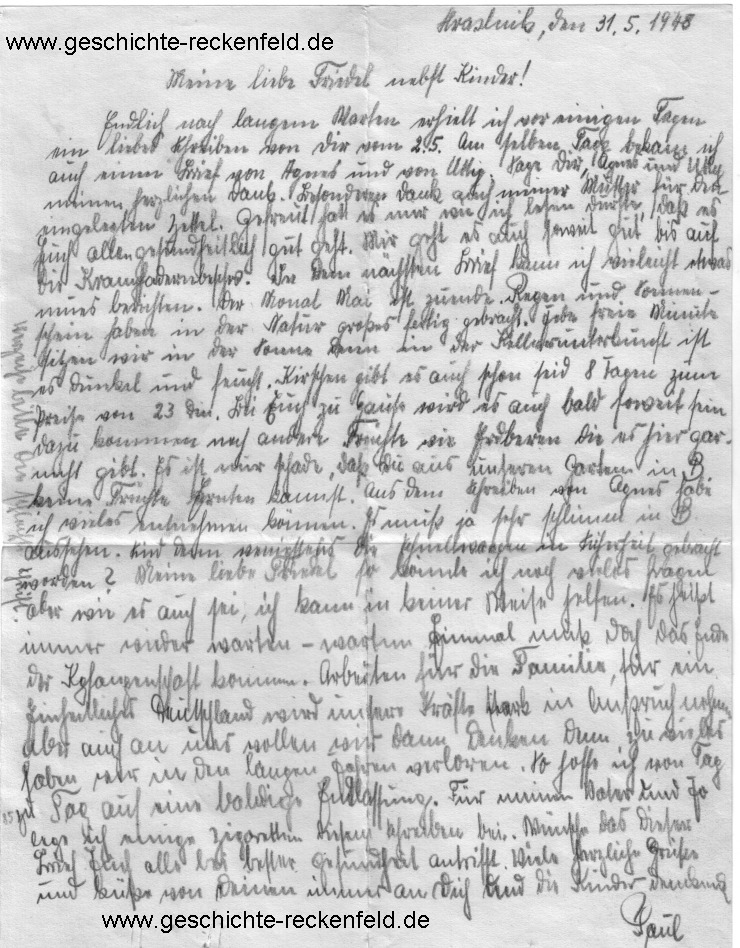 Hrastnik, den 31.5.1948
www.geschichte-reckenfeld.de
Meine liebe Friedel nebst Kinder!
Endlich nach langem Warten erhielt ich vor einigen Tagen
ein liebes Schreiben von Dir vom 2.5. Am selben Tage bekam ich
auch einen Brief von Agnes und von . Sage Dir, Agnes und
meinen herzlichen Dank. Besonderen Dank auch meiner Mutter für den
eingelegten Zettel. Gefreut hatt es mir wie ich lesen durfte, daß es
Euch allen gesundheitlich gut geht. Mir geht es auch soweit gut bis auf
die . In dem nächsten Brief kann ich vieleicht etwas
neues berichten. Der Monat Mai ist zuende. Regen und Sonnen-
schein haben in der Natur großes fertig gebracht. Jede freie Minute
sitzen wir in der Sonne denn in der Kellerunterkunft ist
es dunkel und feucht. Kirschen gibt es auch schon seid 8 Tagen zum
Preise von 23 Din. Bei Euch zu Hause wird es auch bald soweit sein
dazu kommen noch andere Früchte wie Erdberen die es hier gar-
nicht gibt. Es ist nur schade, daß Du aus unseren Garten in B.
keine Früchte Ernten kannst. Aus dem Schreiben von Agnes habe
ich vieles entnehmen können. Es muß ja sehr schlimm in B.
aussehen. Sind denn wenigstens die in Sicherheit gebracht
worden? Meine liebe Friedel so könnte ich noch vieles fragen
aber wie es auch sei, ich kann in keiner Weise helfen. Es heißt
immer wider warten – warten Einmal muß doch das Ende
der Kgfangenschaft kommen. Arbeiten für die Familie, für ein
Einheitliches Deutschland wird unsere Kräfte stark in Anspruch nehmen
aber auch an uns wollen wir dann denken denn zu vieles
haben wir in den langen Jahren verloren. So hoffe ich von Tag
zu Tag auf eine baldige Entlassung. Für meinen Vater und Jo
lege ich einige Zigaretten diesem Schreiben bei. Wünsche das dieser
Brief Euch alle bei bester Gesundheit antrifft. Viele herzliche Grüße
und küße von Deinen immer an Dich und die Kinder denkend
Paul
www.geschichte-reckenfeld.de
bitte die Schrift